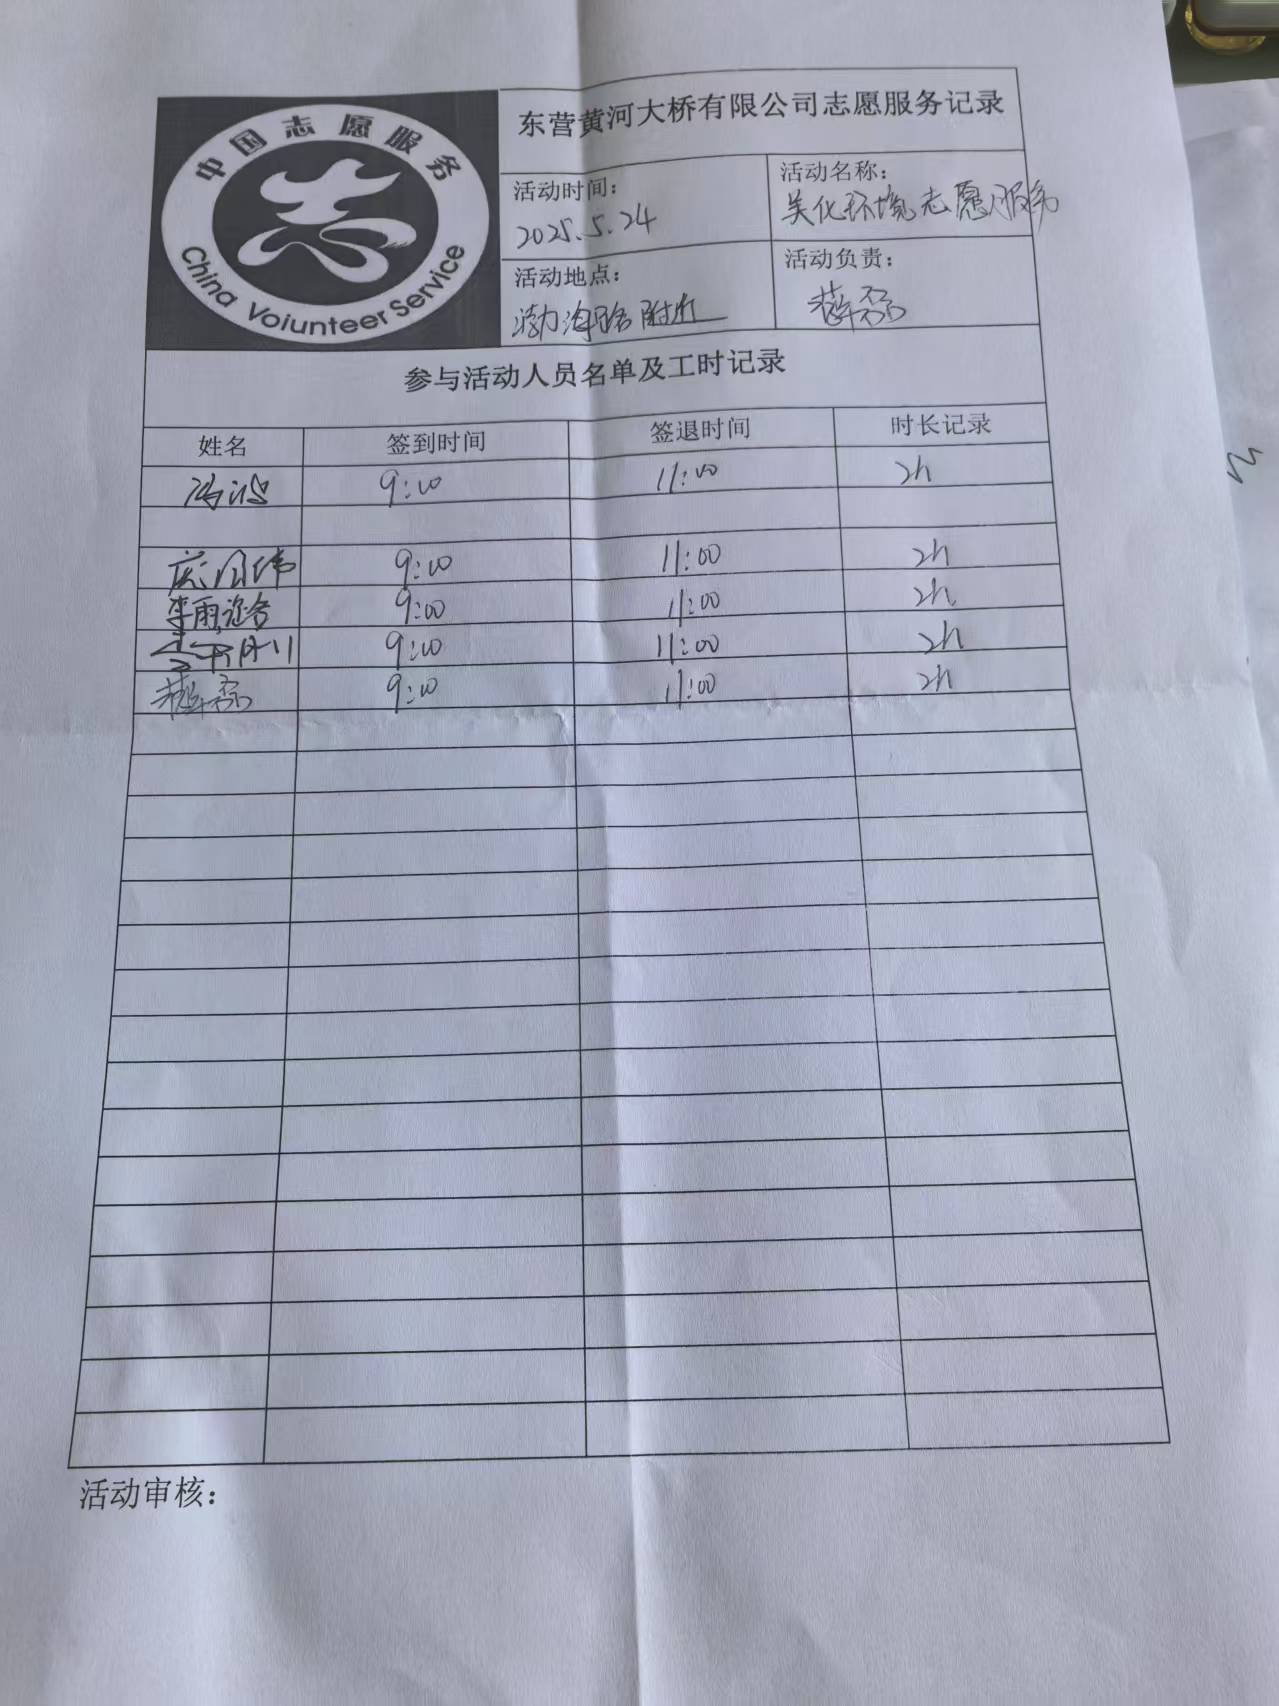 中国志愿服务
China Voiunteer Service
东营黄河大桥有限公司志愿服务记录
活动时间：
2025.5.24
活动名称：
美化环境志愿服务
活动地点：
渤海路附近
活动负责：
薛磊
参与活动人员名单及工时记录
姓名 签到时间 签退时间 时长记录
9:00 11:00 2h
9:00 11:00 2h
李雨 9:00 11:00 2h
9:00 11:00 2h
薛磊 9:00 11:00 2h
活动审核：